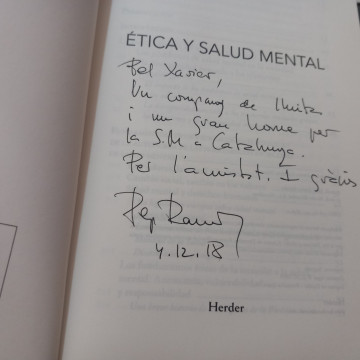 ÉTICA Y SALUD MENTAL
Pel Xavier,
Un company de lluita
i un gran home per
la S.M a Catalunya.
Per l'amistat. I gràcies
Pep
4.12.18
Herder